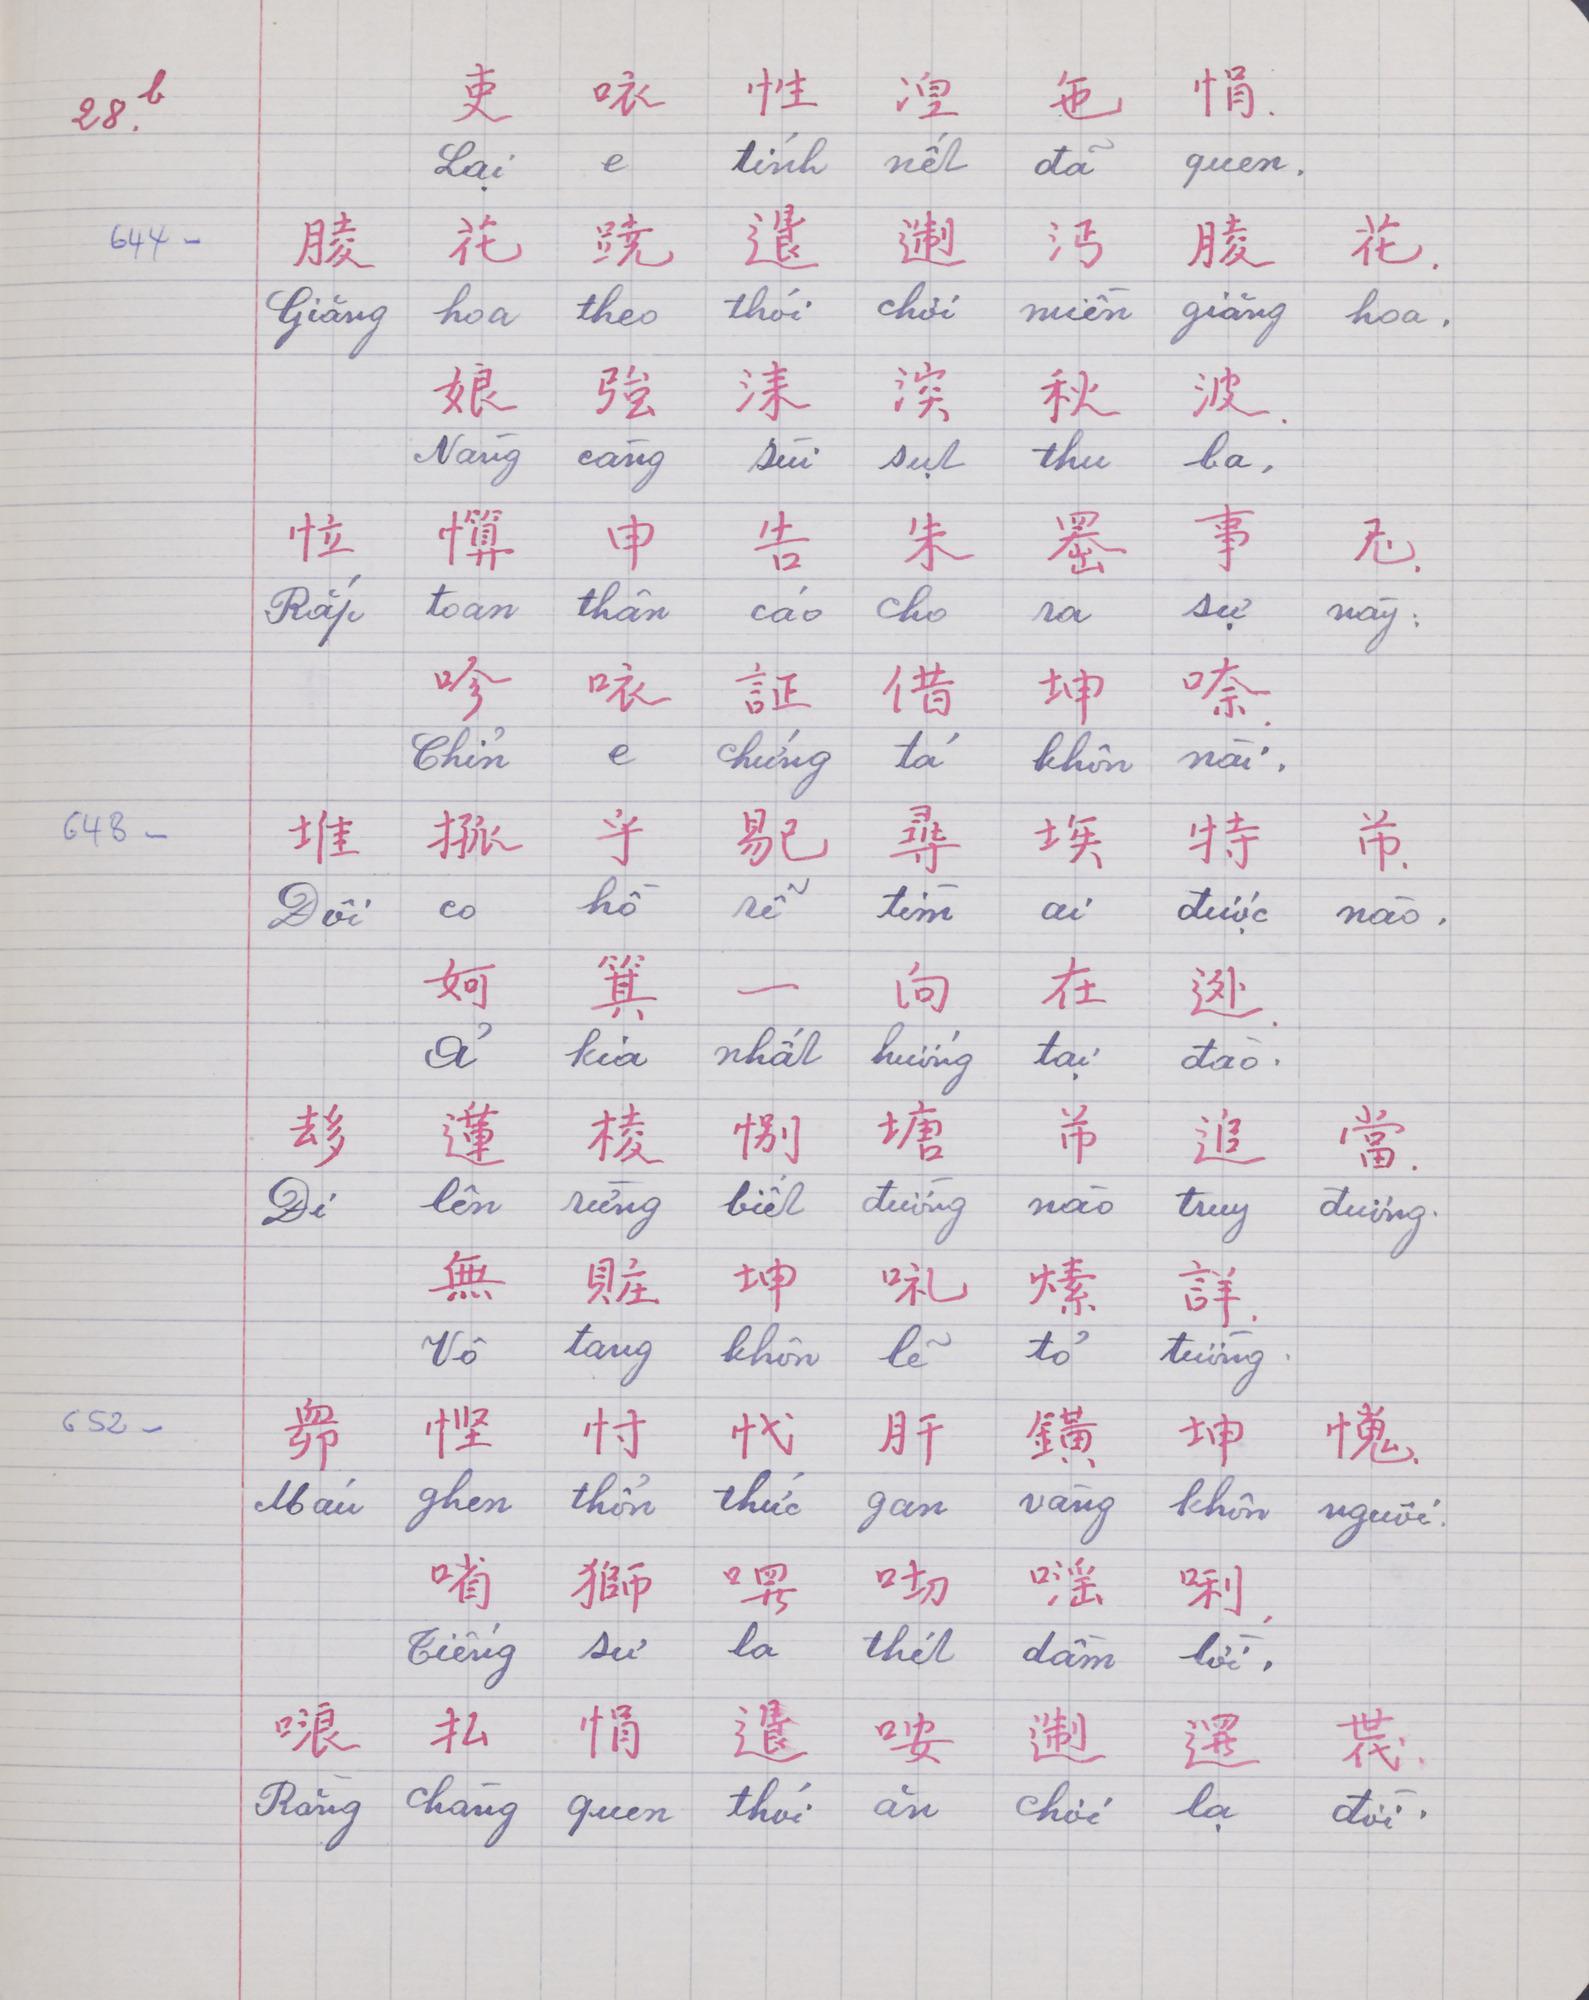 28.b
吏 咴 性 涅 㐌 悁.
Lại e tính nết đã quen.
644 -
花 𨀊 𨔍 沔 花.
Giăng hoa theo thói chơi miền giăng hoa.
娘 強 洡 湥 秋 波.
Nàng càng sùi sụt thu ba.
𢂰 申 告 朱 𠚢 事 尼.
Rắp toan thân cáo cho ra sự này:
咴 証 借 坤 㖠.
Thỉn e chứng tá khôn nài.
648 -
堆 乎 易 尋 埃 特 芇.
Dôi co hồ rễ tìm ai được nào.
妸 箕 一 向 在 逃.
Ả kia nhất hướng tại đào.
𠫾 𨖲 棱 別 塘 芇 追 當.
Di lên rừng biết đường nào truy đương.
無 賍 坤 𠱋 愫 詳.
Vô tang khôn lẽ tỏ tường.
652 -
悭 忖 忲 肝 鐄 坤 愧.
Máu ghen thổn thức gan vàng khôn nguôi.
㗂 獅 㗁 𠯦 㗃 唎.
Tiếng sư la thét dầm lời.
哴 払 悁 𠹴 𨔍 𨔍 𠁀.
Rằng chàng quen thói ăn chơi lạ đời.